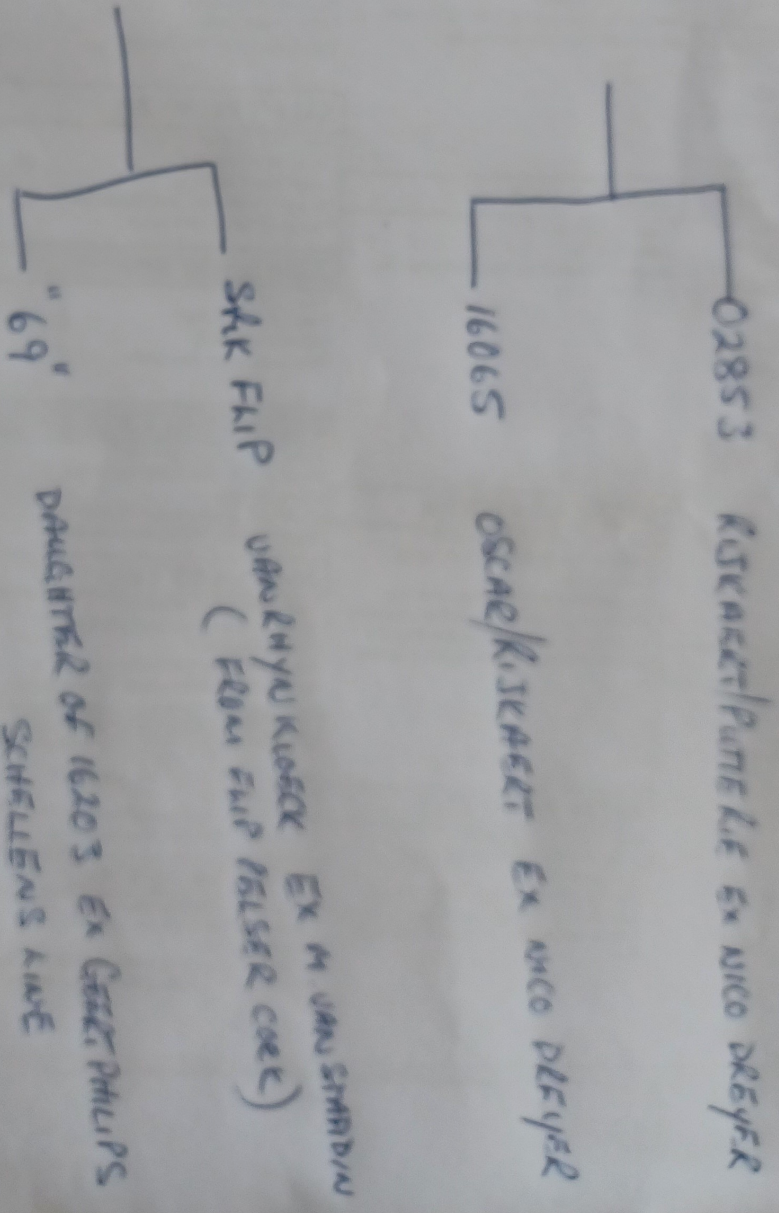 02853 RIJKAERT/PUTTERIE EX NICO DREYER
16065 OSCAR/RIJKAERT EX NICO DREYER
S&K FLIP VANRHYN KLOECK EX M. VAN STAADIN
(FROM FLIP PELSER COCK)
"69" DAUGHTER OF 16203 EX GEERT PHILIPS
SCHELLENS LINE